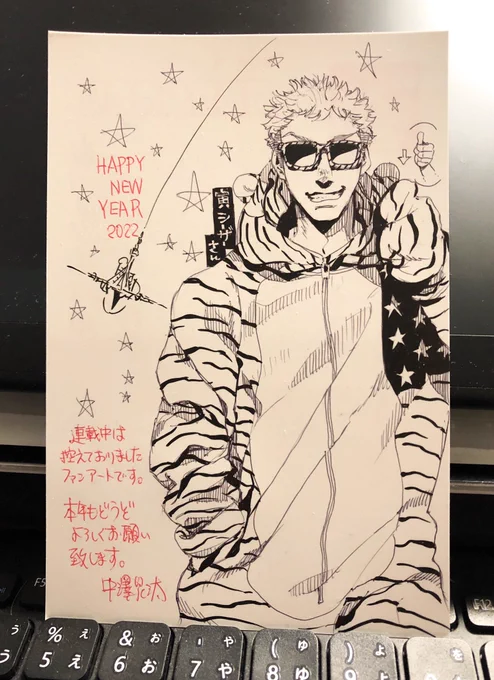 HAPPY
NEW
YEAR
2022
寅シーザーさん
連載中は
控えておりました
ファンアートです。
本年もどうぞ
よろしくお願い
致します。
中澤
F5
F12
% ぇ
& ぉ
' ゃ
( ゅ
) ょ
を
う
5 え
6 お
7 や
8 ゆ
9 よ